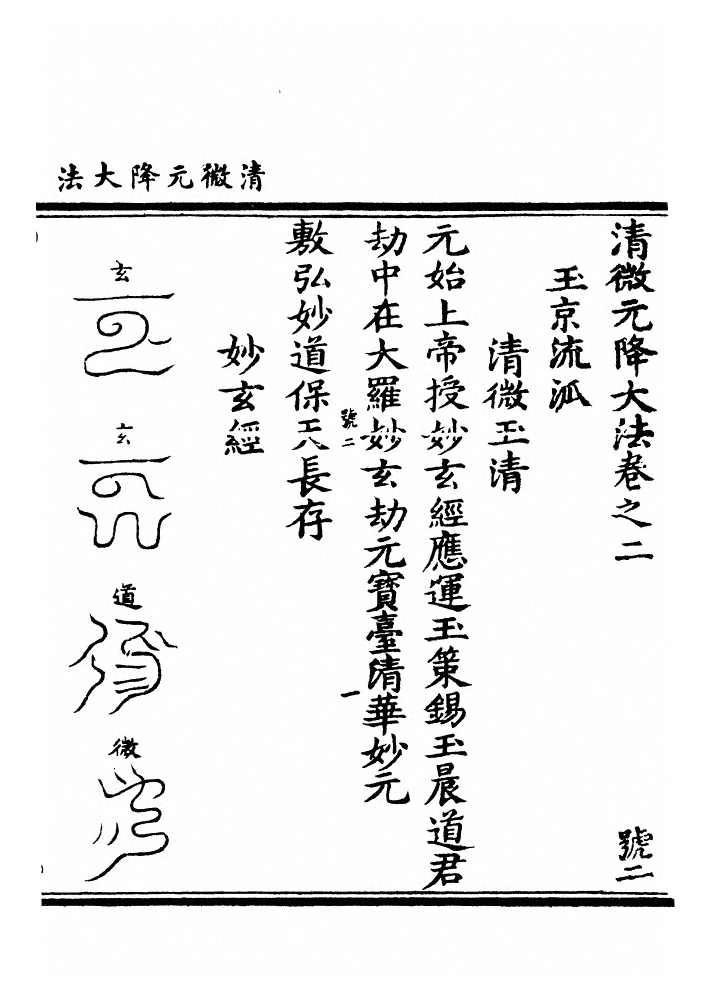 清微元降大法
清微元降大法卷之二　號二
玉京流泒
清微玉清
元始上帝授妙玄經應運玉策錫玉晨道君
劫中在大羅妙玄劫元寶臺清華妙元
號二　一
敷弘妙道保兲長存
妙玄經
玄
玄
道
微